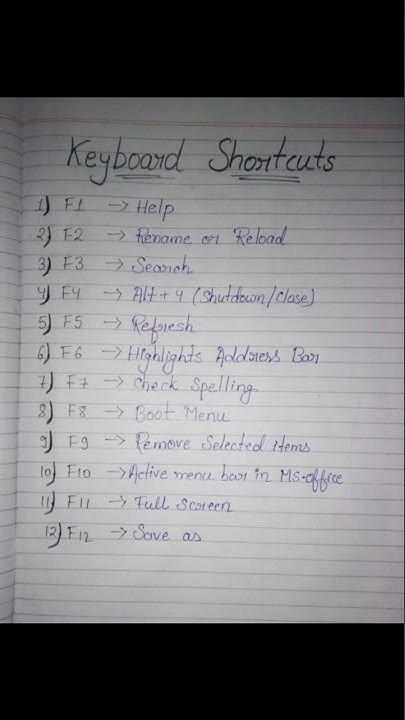 Keyboard Shortcuts
1) F1 → Help
2) F2 → Rename or Reload
3) F3 → Search
4) F4 → Alt + 4 (Shutdown/Close)
5) F5 → Refresh
6) F6 → Highlights Address Bar
7) F7 → Check Spelling
8) F8 → Boot Menu
9) F9 → Remove Selected items
10) F10 → Active menu bar in MS-office
11) F11 → Full Screen
12) F12 → Save as